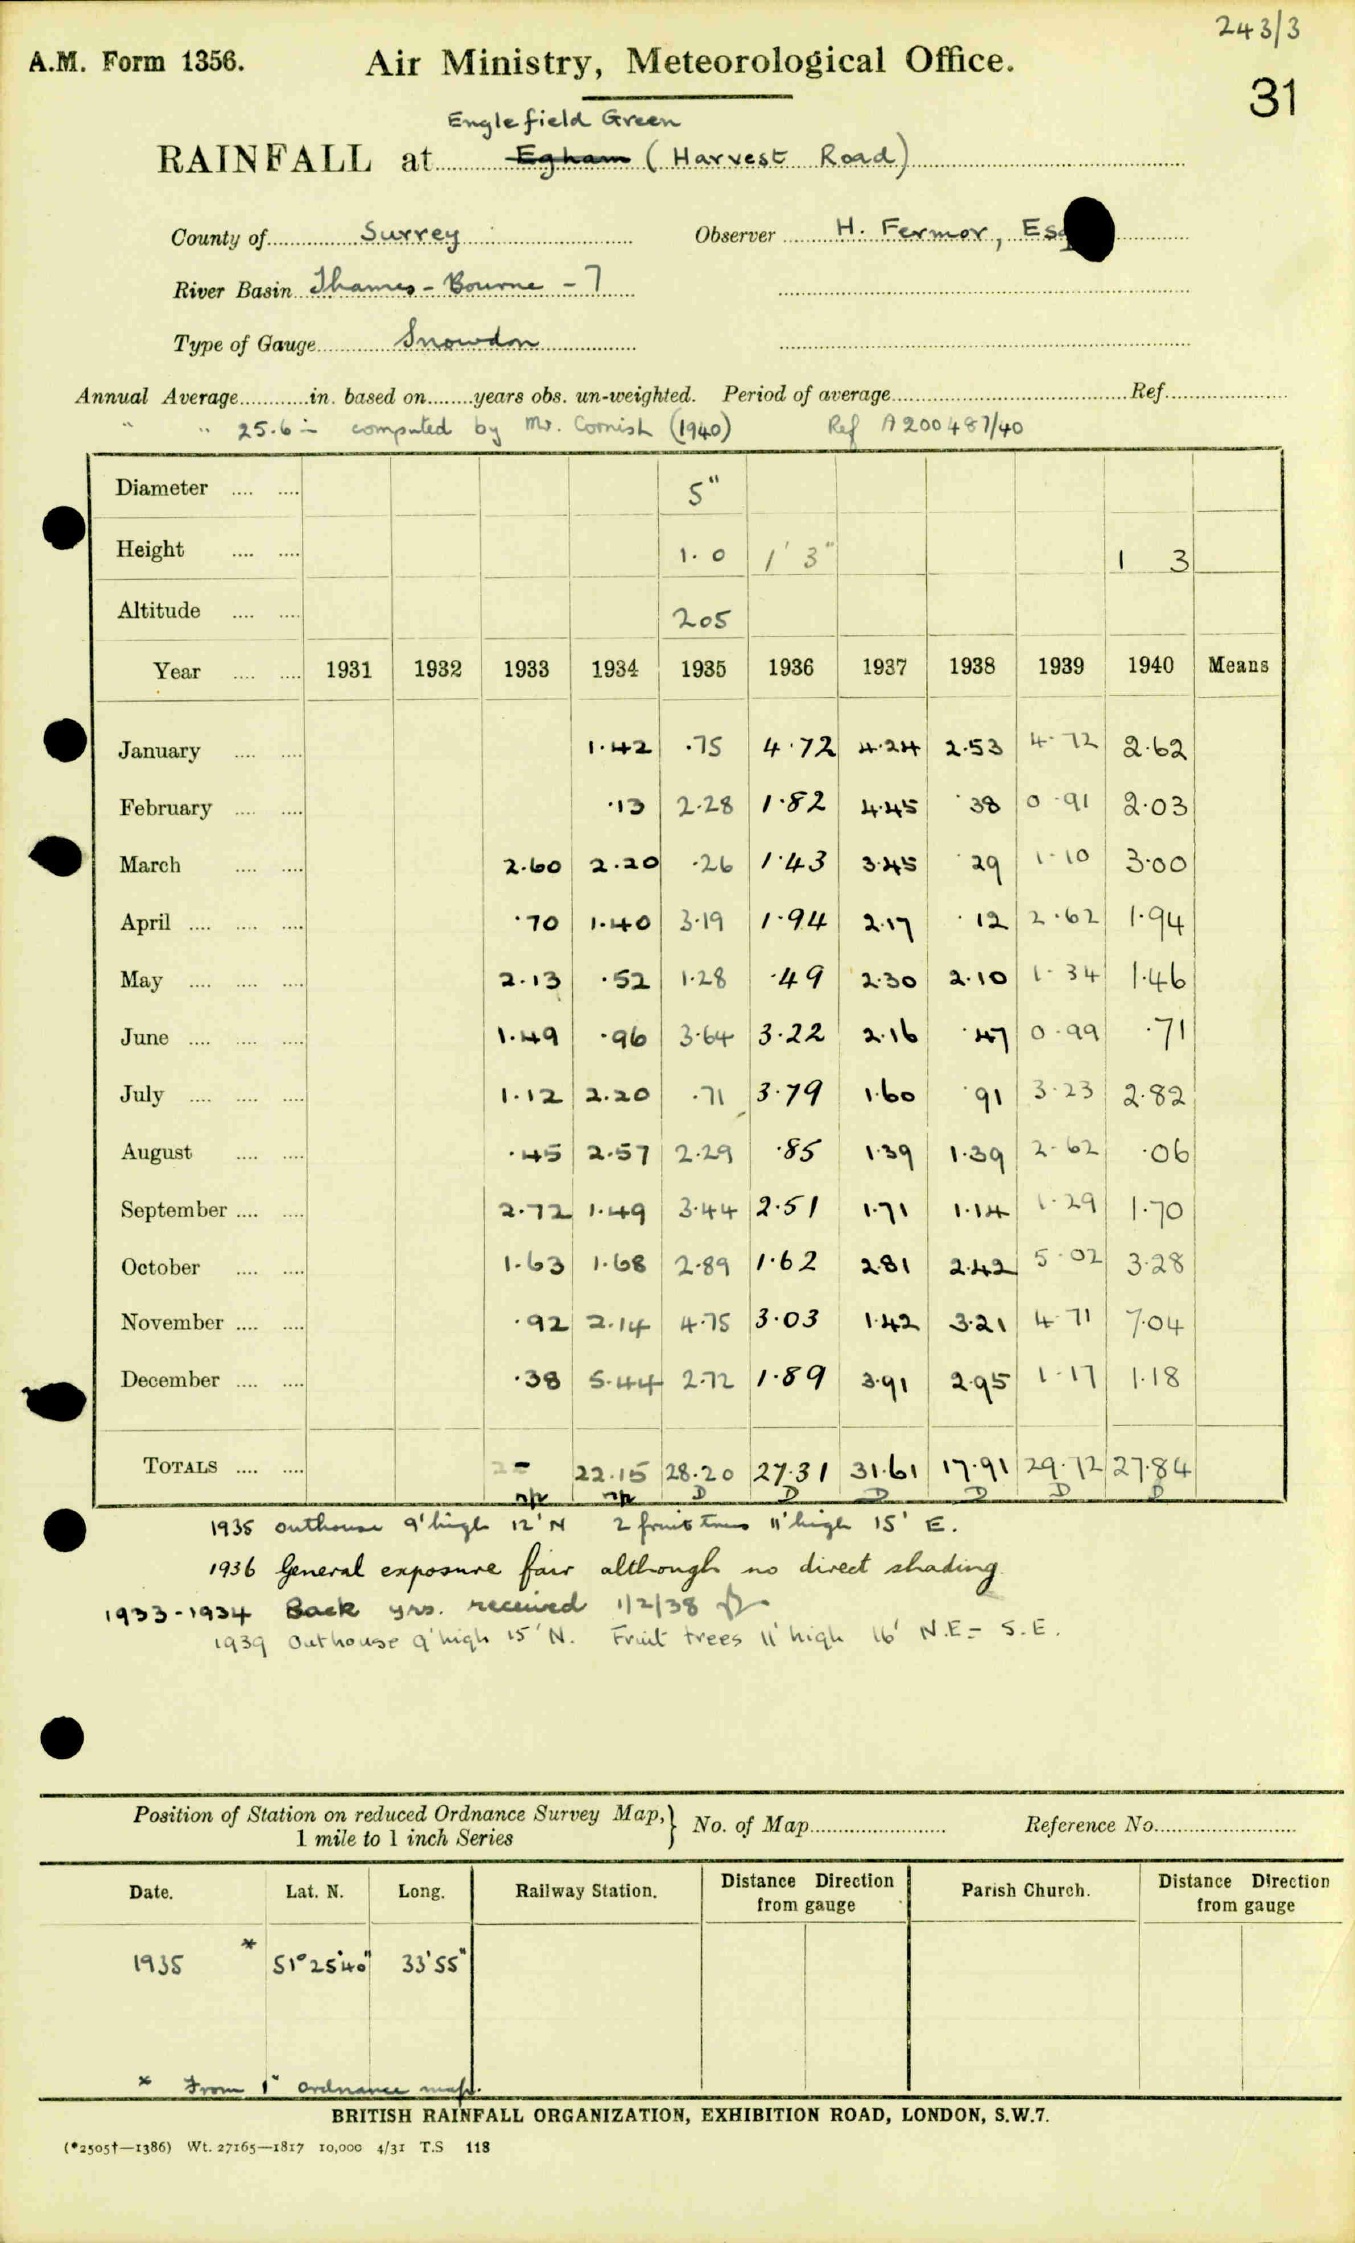 243/3
A.M. Form 1356. Air Ministry, Meteorological Office.
31
Englefield Green
RAINFALL at Egham (Harvest Road)
County of Surrey Observer H. Fermor, Esq
River Basin Thames - Bourne - 7
Type of Gauge Snowdon
Annual Average............in. based on........years obs. un-weighted. Period of average............Ref............
" " 25.6 in computed by Mr. Cornish (1940) Ref A200487/40
Diameter .... .... 5"
Height .... .... 1.0 1' 3" 1 3
Altitude .... .... 205
Year .... .... 1931 1932 1933 1934 1935 1936 1937 1938 1939 1940 Means
January .... .... 1.42 .75 4.72 4.24 2.53 4.72 2.62
February .... .... .13 2.28 1.82 4.45 .38 0.91 2.03
March .... .... 2.60 2.20 .26 1.43 3.45 .29 1.10 3.00
April .... .... .... .70 1.40 3.19 1.94 2.17 .12 2.62 1.94
May .... .... .... 2.13 .52 1.28 .49 2.30 2.10 1.34 1.46
June .... .... .... 1.49 .96 3.64 3.22 2.16 .47 0.99 .71
July .... .... .... 1.12 2.20 .71 3.79 1.60 .91 3.23 2.82
August .... .... .45 2.57 2.29 .85 1.39 1.39 2.62 .06
September .... .... 2.72 1.49 3.44 2.51 1.71 1.14 1.29 1.70
October .... .... 1.63 1.68 2.89 1.62 2.81 2.42 5.02 3.28
November .... .... .92 2.14 4.75 3.03 1.42 3.21 4.71 7.04
December .... .... .38 5.44 2.72 1.89 3.91 2.95 1.17 1.18
TOTALS .... .... - 22.15 28.20 27.31 31.61 17.91 29.72 27.84
np np D D D D D D
1935 outhouse 9' high 12' N 2 fruit trees 11' high 15' E.
1936 General exposure fair although no direct shading
1933-1934 Back yrs. received 1/2/38
1939 Outhouse 9' high 15' N. Fruit trees 11' high 16' N.E - S.E.
Position of Station on reduced Ordnance Survey Map, 1 mile to 1 inch Series } No. of Map............ Reference No............
Date. Lat. N. Long. Railway Station. Distance Direction from gauge Parish Church. Distance Direction from gauge
1935 * 51° 25' 40" 33' 55"
* From 1" ordnance map.
BRITISH RAINFALL ORGANIZATION, EXHIBITION ROAD, LONDON, S.W.7.
(*2505†—1386) Wt. 27165—1817 10,000 4/31 T.S 118